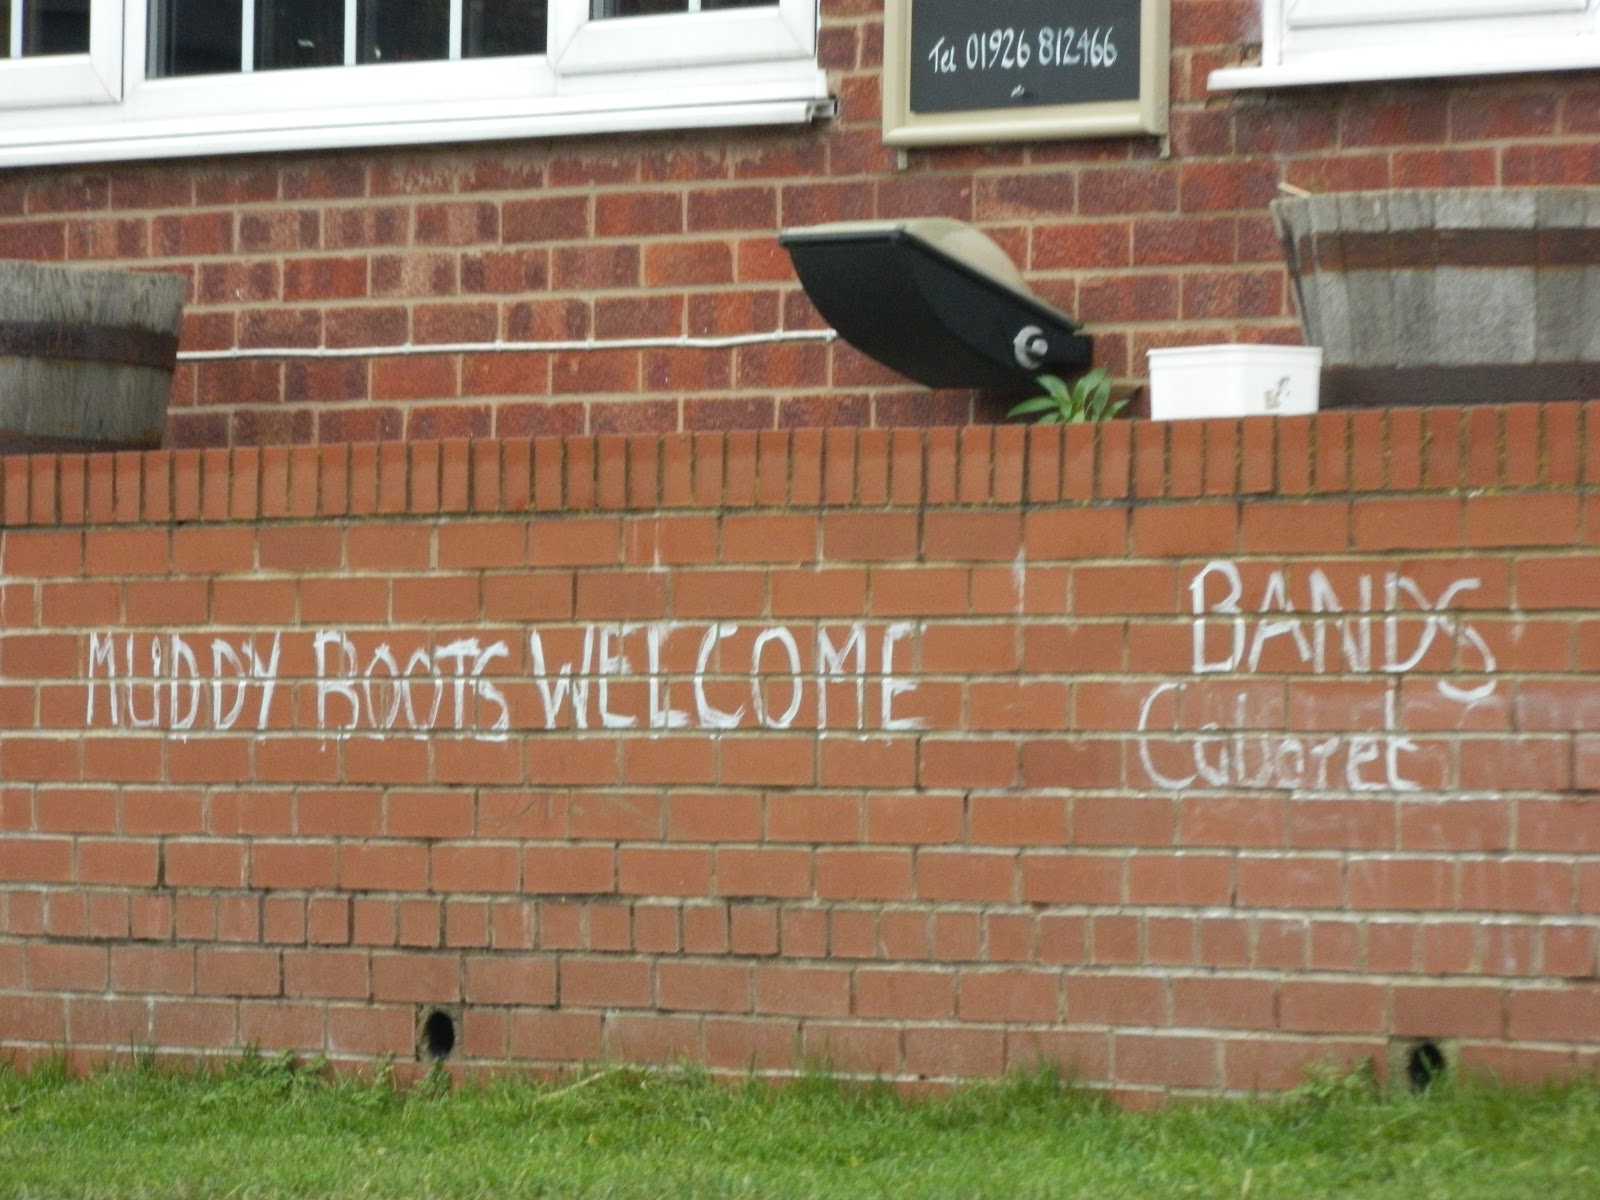 Tel 01926 812466
MUDDY BOOTS WELCOME
BANDS
Cabaret